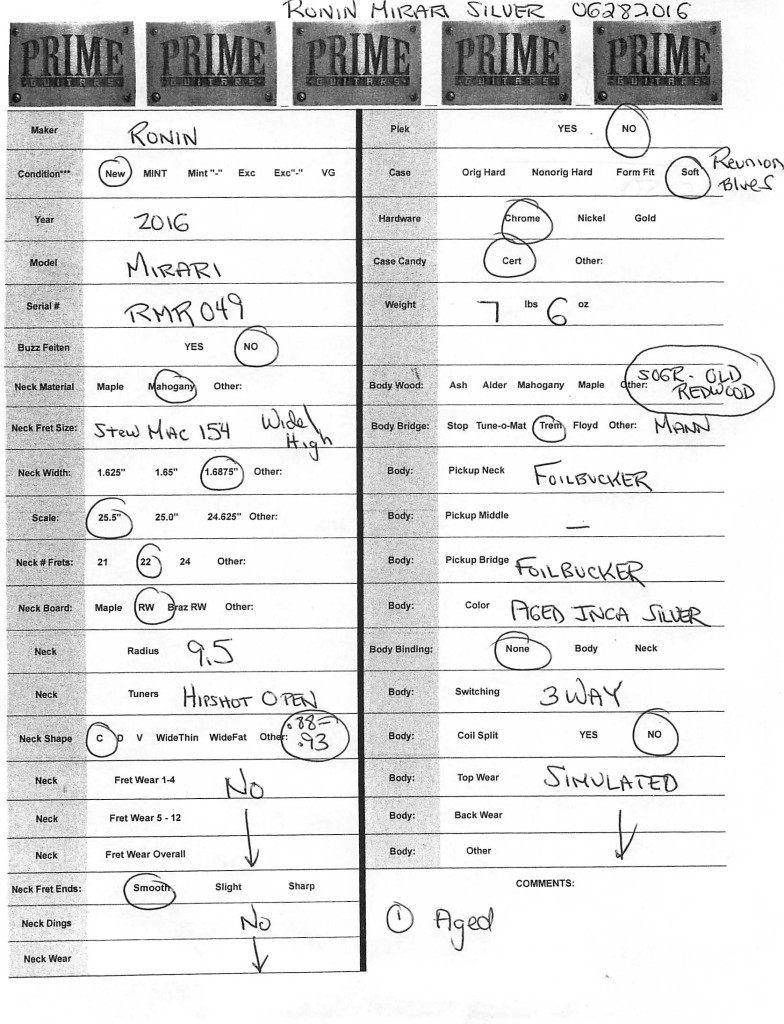 RONIN MIRARI SILVER 06282016
PRIME PRIME PRIME PRIME PRIME
GUITARS GUITARS GUITARS GUITARS GUITARS
Maker RONIN
Condition*** New MINT Mint "-" Exc Exc"-" VG
Year 2016
Model MIRARI
Serial # RMR049
Buzz Feiten YES NO
Neck Material Maple Mahogany Other:
Neck Fret Size: Stew MAC 154 Wide/
High
Neck Width: 1.625" 1.65" 1.6875" Other:
Scale: 25.5" 25.0" 24.625" Other:
Neck # Frets: 21 22 24 Other:
Neck Board: Maple RW Braz RW Other:
Neck Radius 9.5
Neck Tuners HIPSHOT OPEN
Neck Shape C D V WideThin WideFat Other: .88-
.93
Neck Fret Wear 1-4 No
Neck Fret Wear 5 - 12
Neck Fret Wear Overall
Neck Fret Ends: Smooth Slight Sharp
Neck Dings No
Neck Wear
Plek YES NO
Case Orig Hard Nonorig Hard Form Fit Soft Reunion
Blues
Hardware Chrome Nickel Gold
Case Candy Cert Other:
Weight 7 lbs 6 oz
Body Wood: Ash Alder Mahogany Maple Other: SOGR - OLD
REDWOOD
Body Bridge: Stop Tune-o-Mat Trem Floyd Other: MANN
Body: Pickup Neck FOILBUCKER
Body: Pickup Middle —
Body: Pickup Bridge FOILBUCKER
Body: Color AGED INCA SILVER
Body Binding: None Body Neck
Body: Switching 3 WAY
Body: Coil Split YES NO
Body: Top Wear SIMULATED
Body: Back Wear
Body: Other
COMMENTS:
1 Aged